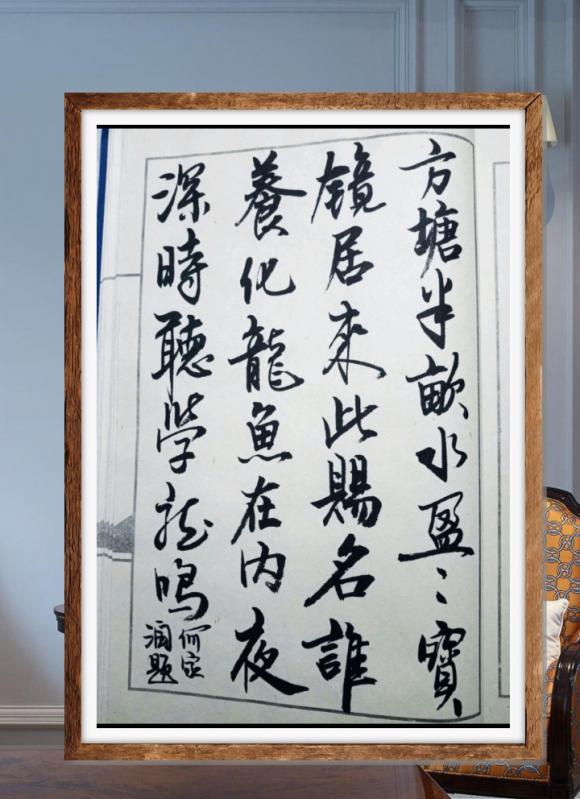 方塘半畝水盈〻寶
鏡居來此賜名誰
養化龍魚在内夜
深時聽學龙鳴
何
潤題